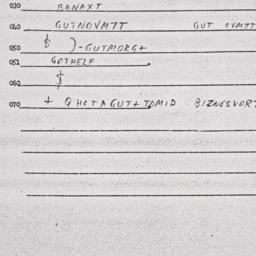 030 BANAXT
040 GUTNOVM7T GUT OVM7T
050 $ )-GUTMORG+
051 GOTHELF .
060 $
070 + QHOTAGUT+TOMID BIZNESVORT